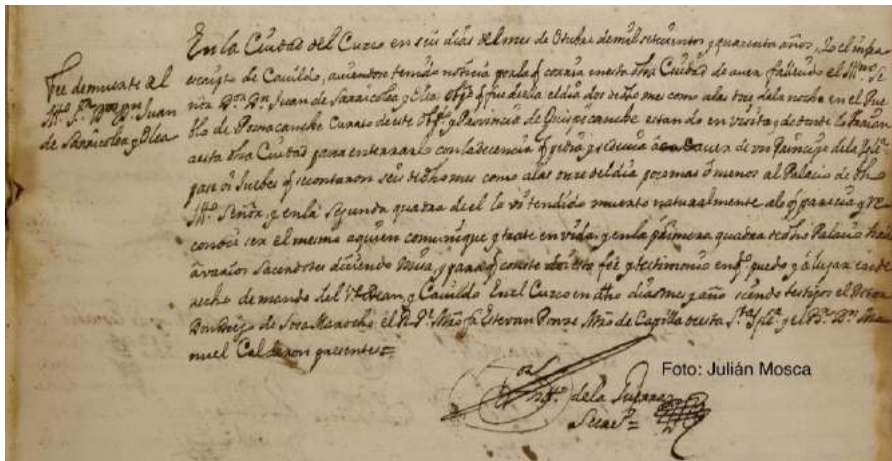 Fee de muerte del
Illmo. Sr. Dor. Dn. Juan
de Sarricolea y Olea
En la Ciudad del Cuzco en seis dias del mes de Octubre de mil setecientos y quarenta años, Yo el infra
escripto de Cavildo, aviendose tenido noticia por la q corria en esta dha Ciudad de aver fallecido el Illmo. Se
ñor Dor. Dn. Juan de Sarricolea y Olea Obpo q fue de ella el dia dos de dho mes como a las tres de la noche en el Pue
blo de Pomacanche Curato de este Obpdo y Provincia de Quispicanche estando en visita, de donde lo traian
a esta dha Ciudad para enterrarlo con la decencia q pedia y se devia a Cadaver de un Principe de la Iglª
pase oi Juebes q se contaron seis de dho mes como a las onze del dia poco mas o menos al Palacio de dho
Illo Señor, y en la segunda quadra de el lo vi tendido muerto naturalmente a lo q parecia y re
conoci ser el mesmo a quien comunique y trate en vida, y en la primera quadra de dho Palacio halle
a varios Sacerdotes diciendo Missa, y para q conste doi esta fee y testimonio en q puedo y a lugar en de
recho de mando del Ve Dean, y Cavildo En el Cuzco en dho dia mes y año siendo testigos el Doctor
Don Diego de Sosa Marocho el R. Pe. Mro fr Estevan Ponze Mro de Capilla de esta Sta Iglª y el Br. Dn Ma
nuel Calderon presentes =
Foto: Julián Mosca
de la Guerra
Secreto =